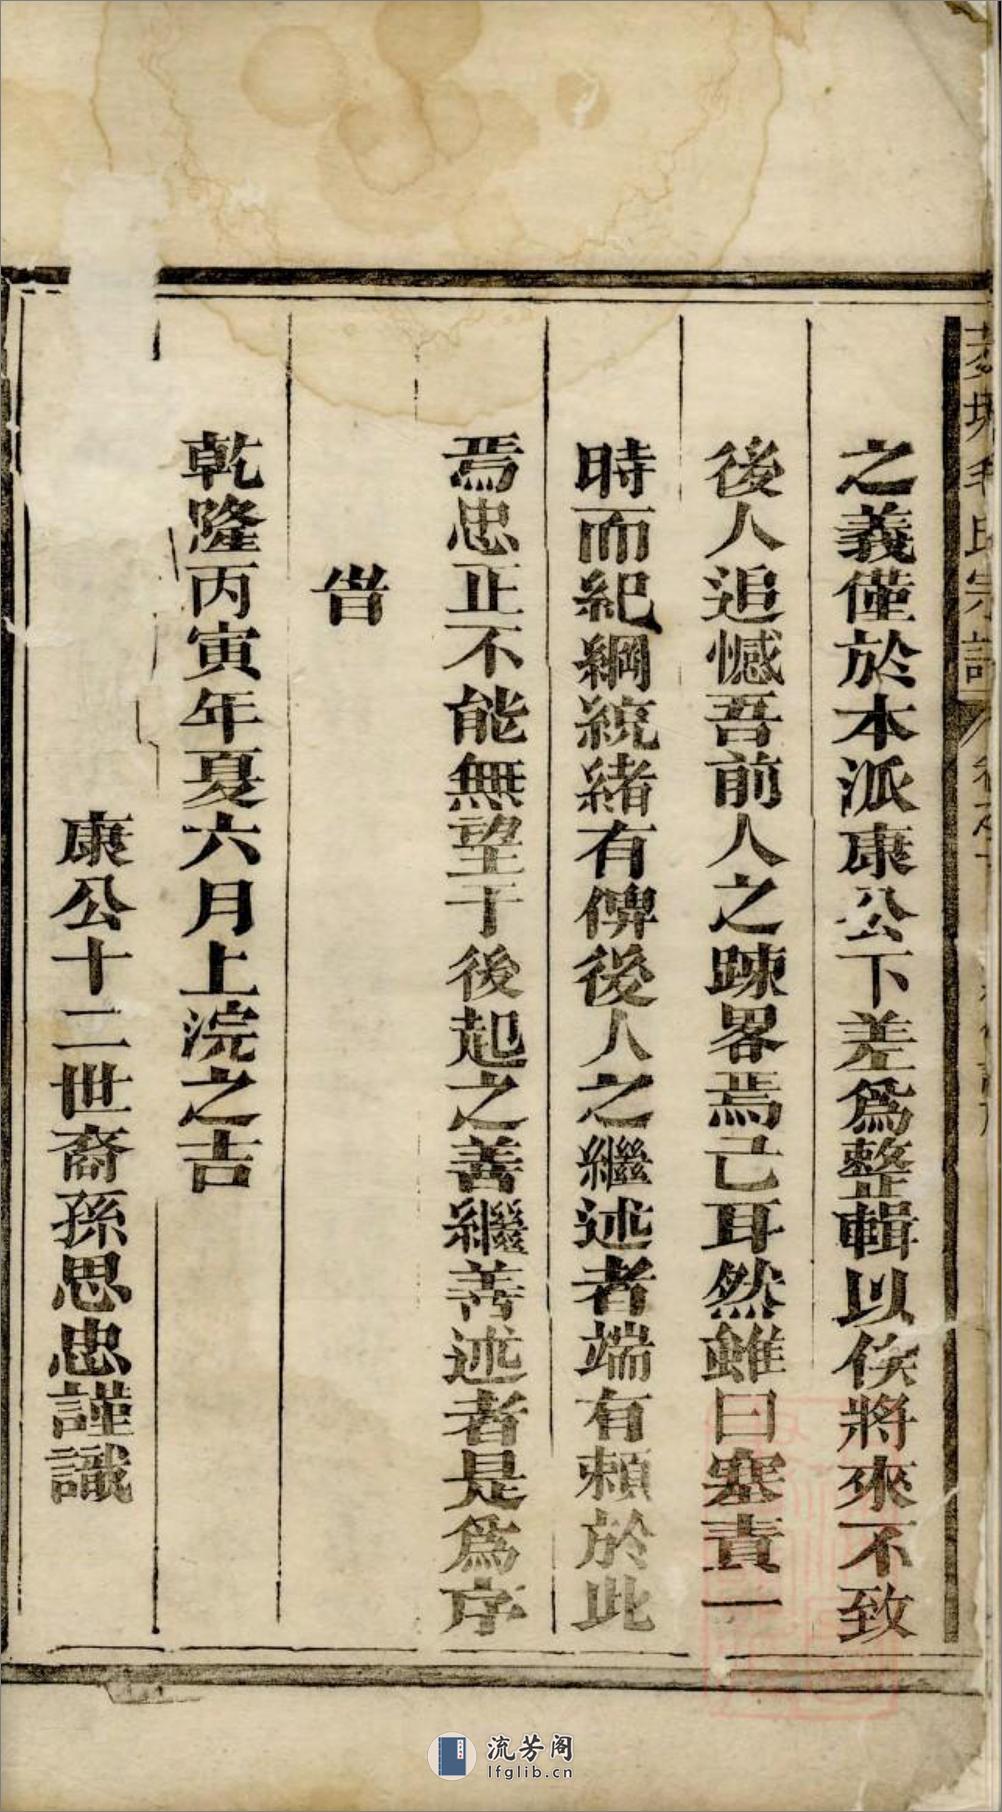 之義僅於本派康公下差爲整輯以俟將來不致
後人追憾吾前人之踈畧焉已耳然雖曰塞責一
時而紀綱統緒有俾後人之繼述者端有賴於此
焉忠正不能無望于後起之善繼善述者是爲序
旹
乾隆丙寅年夏六月上浣之吉
康公十二世裔孫思忠謹識
流芳阁
lfglib.cn